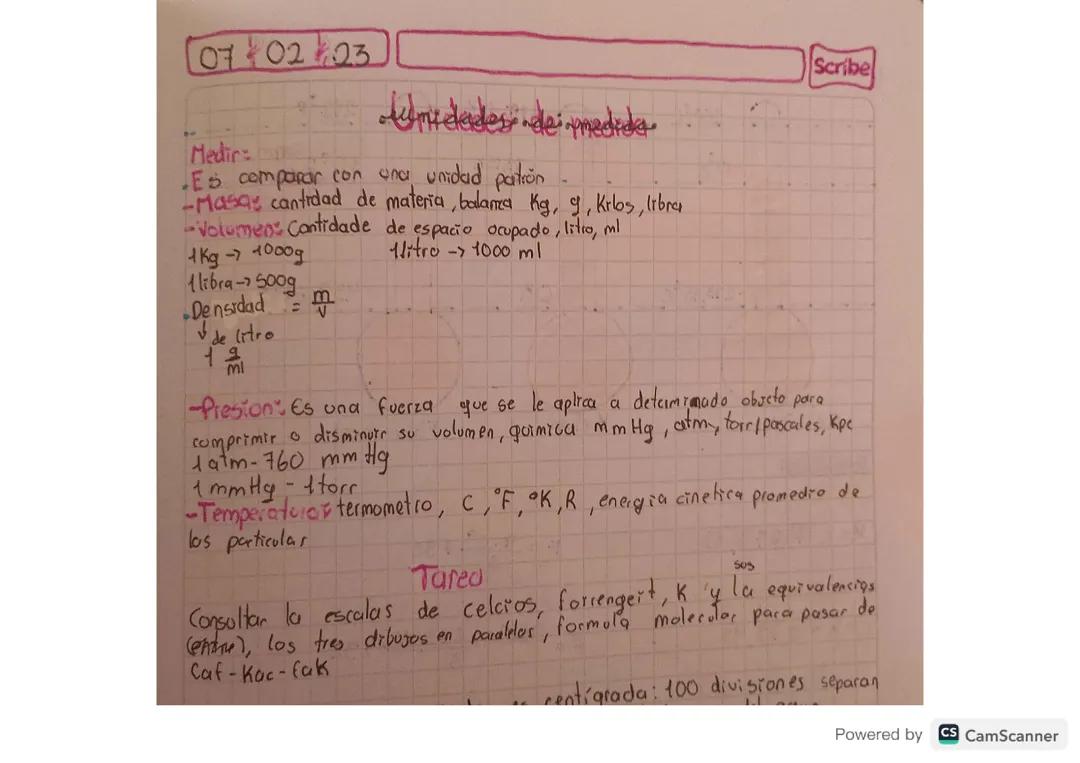 07 02 23
Scribe
Unidades de medida
Medir:
Es comparar con una unidad patrón
-Masa: cantidad de materia, balanza Kg, g, Kilos, libra
-Volumen: Cantidade de espacio ocupado, litro, ml
1Kg -> 1000g 1litro -> 1000 ml
1libra -> 500g
.Densidad = m/v
↓ de litro
1 g/ml
-Presion: Es una fuerza que se le aplica a determinado objeto para
comprimir o disminuir su volumen, quimica mmHg, atm, torr/pascales, Kpc
1atm - 760 mm Hg
1 mmHg - 1torr
-Temperatura: termometro, C, °F, °K, R, energia cinetica promedio de
los particular
Tarea
sus
Consultar la escalas de celcios, forrengeit, K y la equivalencias
(entre), los tres dibujos en paralelos, formula molecular para pasar de
Caf - Kac - fak
centígrada: 100 divisiones separan
Powered by CS CamScanner